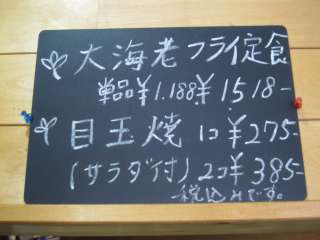 大海老フライ定食
単品¥1.188 ¥1518-
目玉焼 1コ¥275-
(サラダ付) 2コ¥385-
税込みです。